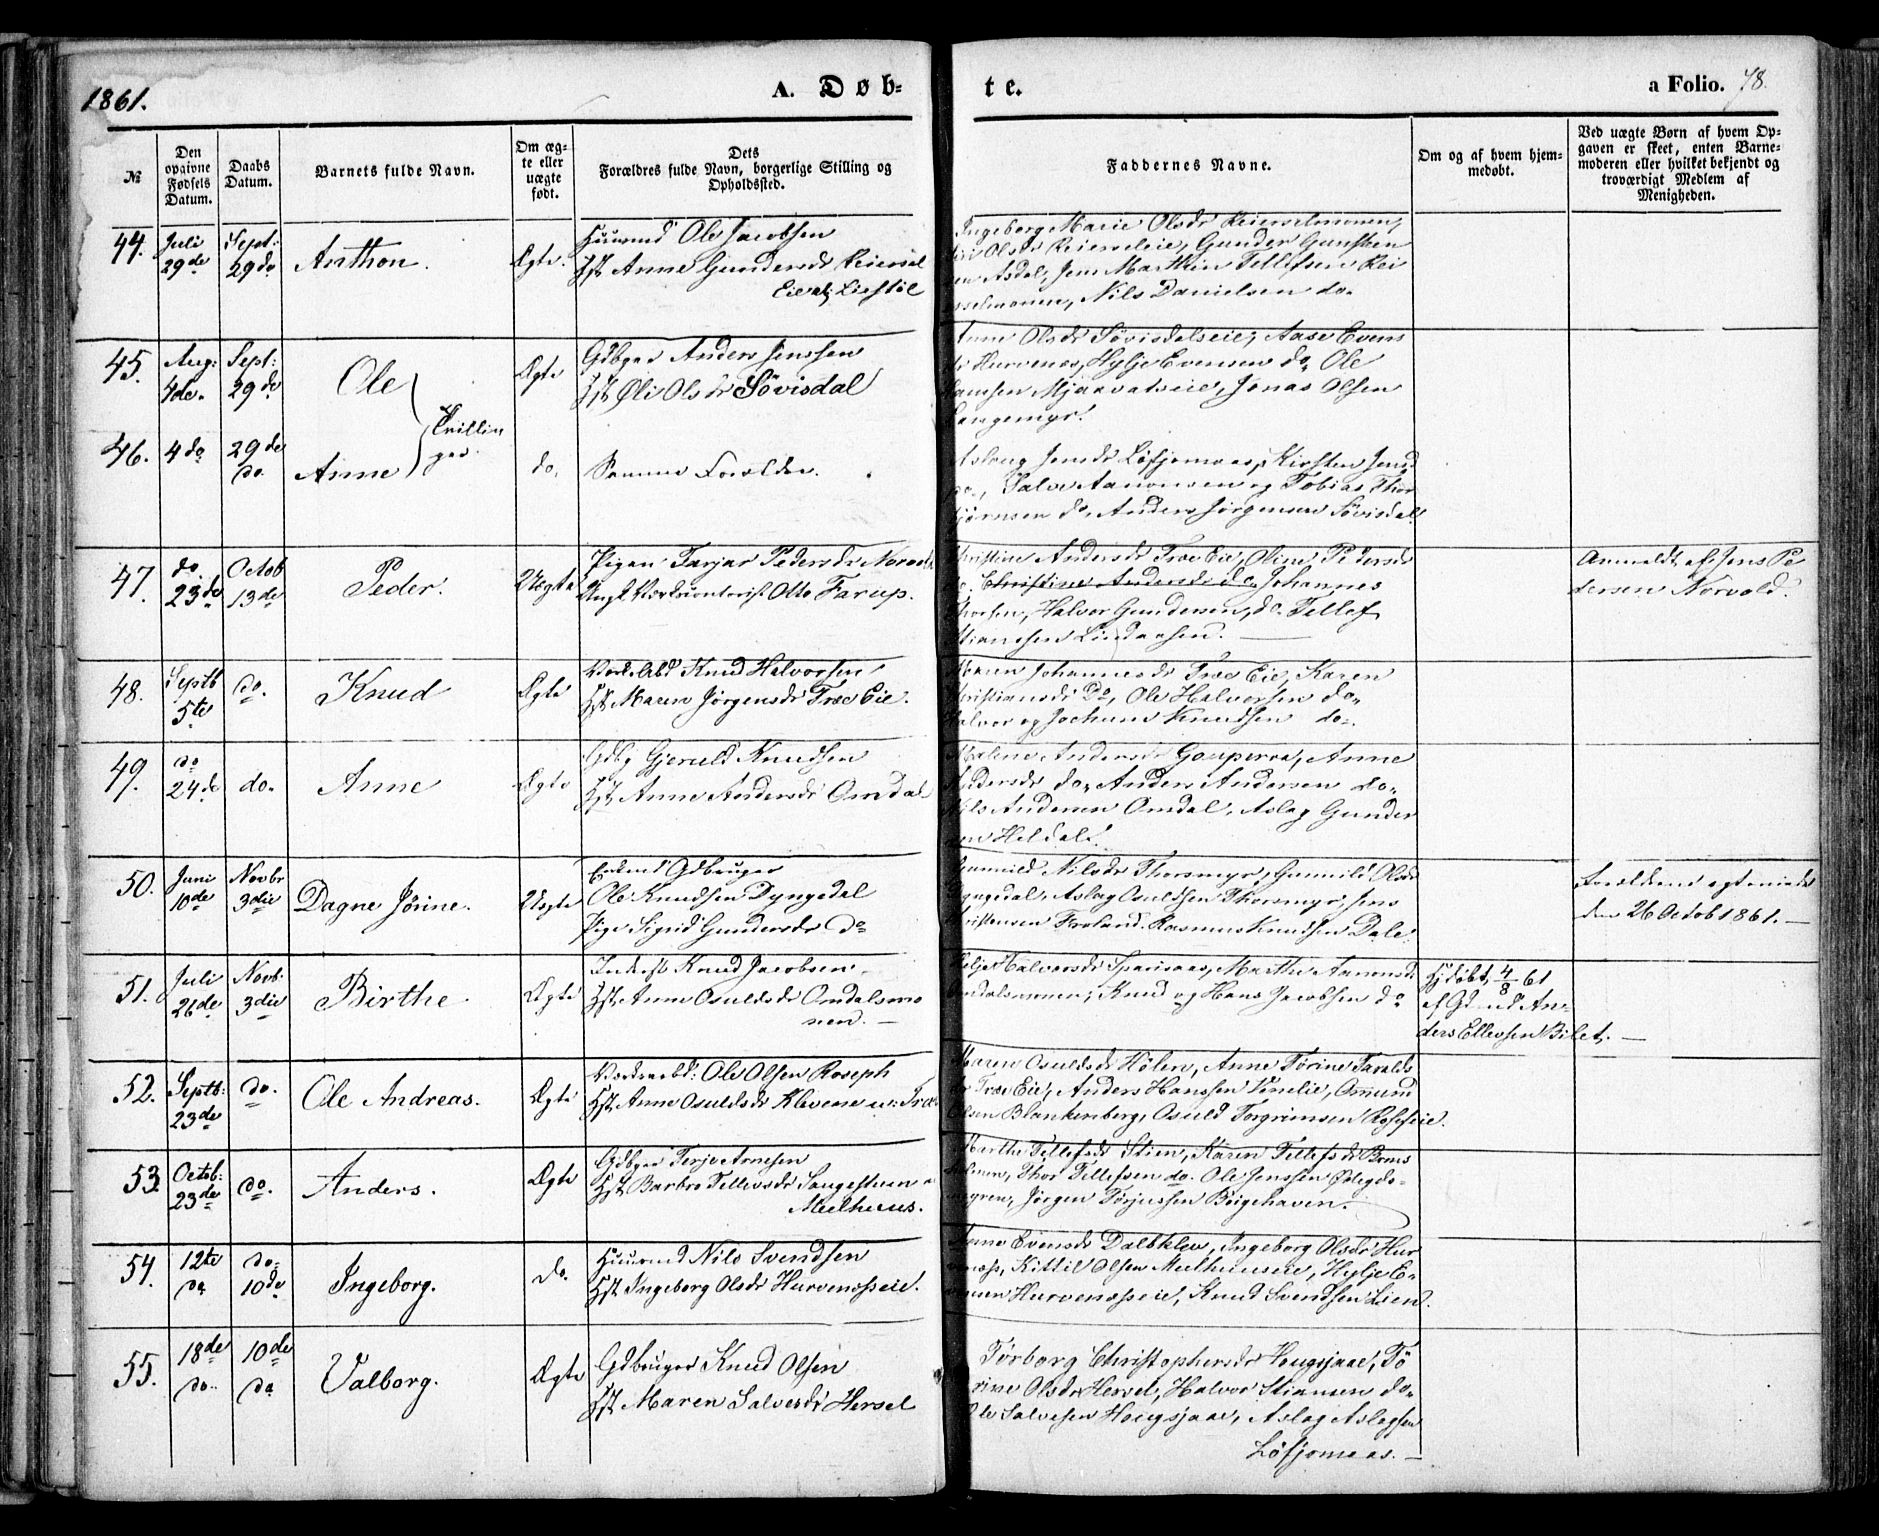 1861.
A. Døb-
te.
a Folio. 78.
№
Den opgivne Fødsels Datum.
Daabs Datum.
Barnets fulde Navn.
Om ægte eller uægte født.
Dets Forældres fulde Navn, borgerlige Stilling og Opholdssted.
Faddernes Navne.
Om og af hvem hjemmedøbt.
Ved uægte Børn af hvem Opgaven er skeet, enten Barnemoderen eller hvilket bekjendt og troværdigt Medlem af Menigheden.
44.
Juli 29de
Sept: 29de
Anthon.
Ægte.
Huusmd Ole Jacobsen
Hst Anne Gundersdr Reiersøl
Eie
Ingeborg Marie Olsdr Reierselmonen,
Olsdr Reierseleie, Gunder Gunsten
Asdal, Jens Marthin Tellefsen Rei
Nils Danielsen do.
45.
Aug: 4de.
Sept: 29de
Ole
Tvillinger.
Ægte
Gdbger Anders Jensen
Hst Øli Olsdr Søvisdal
Anne Olsdr Søvisdalseie, Aase Evens
Hurvenes, Hylje Evensen do, Ole
Hansen Mjaavatneie, Jonas Olsen
Langemyr.
46.
4 do
29de do.
Anne
do.
Samme Forældre.
Aslaug Jensdr Løfjomaas, Kirsten Jensd
do., Salve Aanonsen og Tobias Thor
bjørnsen do, Anders Jørgensen Søvisdal.
47.
do. 23de
Octob 13de
Peder.
Uægte
Pigen Tarjer Pedersdr Norvold
Ungk. Værkscontorist Otto Farup.
Christine Andersdr Træ Eie, Oline Pedersdr
do. Christine Andersdr do Johannes
Thorsen, Halvor Gundersen, do. Tellef
Stiansen Lindaasen.
Anmeldt af Jens Pe
dersen Norvold.
48.
Septb 5te
do.
Knud
Ægte
Værksarbd Knud Halvorsen
Hst Maren Jørgensdr Træ Eie.
Maren Johannesdr Træ Eie, Karen
Christiansdr do, Ole Halvorsen do.
Halvor og Jochum Knudsen do.
49.
do 24de
do.
Anne
Ægte
Gdbg Gjeruld Knudsen
Hst Anne Andersdr Omdal.
Maline Andersdr Gouperaa, Anne
Pedersdr do. Anders Andersen do.
Nils Andersen Omdal, Aslag Gunder
sen Heldal.
50.
Juni 10de
Novbr 3die
Dagne Jørine.
Uægte
Enkemd Gdbruger
Ole Knudsen Dyngedal
Pige Sigrid Gundersdr do
Gunnild Nilsdr Thorsmyr, Gunnild Olsdr
Dyngedal, Aslag Osuldsen Thorsmyr, Jens
Christensen Froland. Rasmus Knudsen Dale.
Forældrene egteviede
den 26 Octob 1861.
51.
Juli 26de
Novb: 3die
Birthe
Ægte
Inderst Knud Jacobsen
Hst Anne Osuldsdr Omdalsmo
nen.
Halvorsdr Sparsaas, Marthe Aanonsdr
Omdalsmonen, Knud og Hans Jacobsen do
Hjdøbt 4/8 61
af Gdmd An-
ders Ellevsen Bilet.
52.
Septb: 23de
do.
Ole Andreas.
Ægte
Værksarbd: Ole Olsen Roseph
Hst Anne Osuldsdr Klevene u. Træ
Maren Osuldsdr Hølen, Anne Tørine Taralds
dr Træ Eie, Anders Hansen Vænelie, Omund
Olsen Blankenberg, Osuld Torgrimsen Roseseie.
53.
Octob: 23de
do.
Anders.
Ægte
Gdbger Terje Arnesen
Hst Barbro Tellevsdr Songesteen
Mælhuus.
Marthe Tellefsdr Stien, Karen Tellefsdr Boms
holmen, Thor Tellefsen do. Ole Jenssen Ødegdo-
myren, Jørgen Tørjussen Bøigehaven.
54.
12te do
do. 10de
Ingeborg.
do.
Huusmd Nils Svendsen
Hst Ingeborg Olsdr Hurvenæsseie.
Anne Evensdr Dalbklev, Ingeborg Olsdr Hur
venæss, Kittil Olsen Mælhuuseie, Hylje E-
vensen Hurvenæsseie, Knud Svendsen Lien.
55.
18de do.
10de do
Valborg.
Ægte
Gdbruger Knud Olsen
Hst Maren Salvesdr Hersel
Tørborg Christophersdr Hougsjaae, Tø
rine Olsdr Hersel, Halvor Stiansen do.
Ole Salvesen Hougsjaae, Aslag Aslagsen
Løfjomaas.